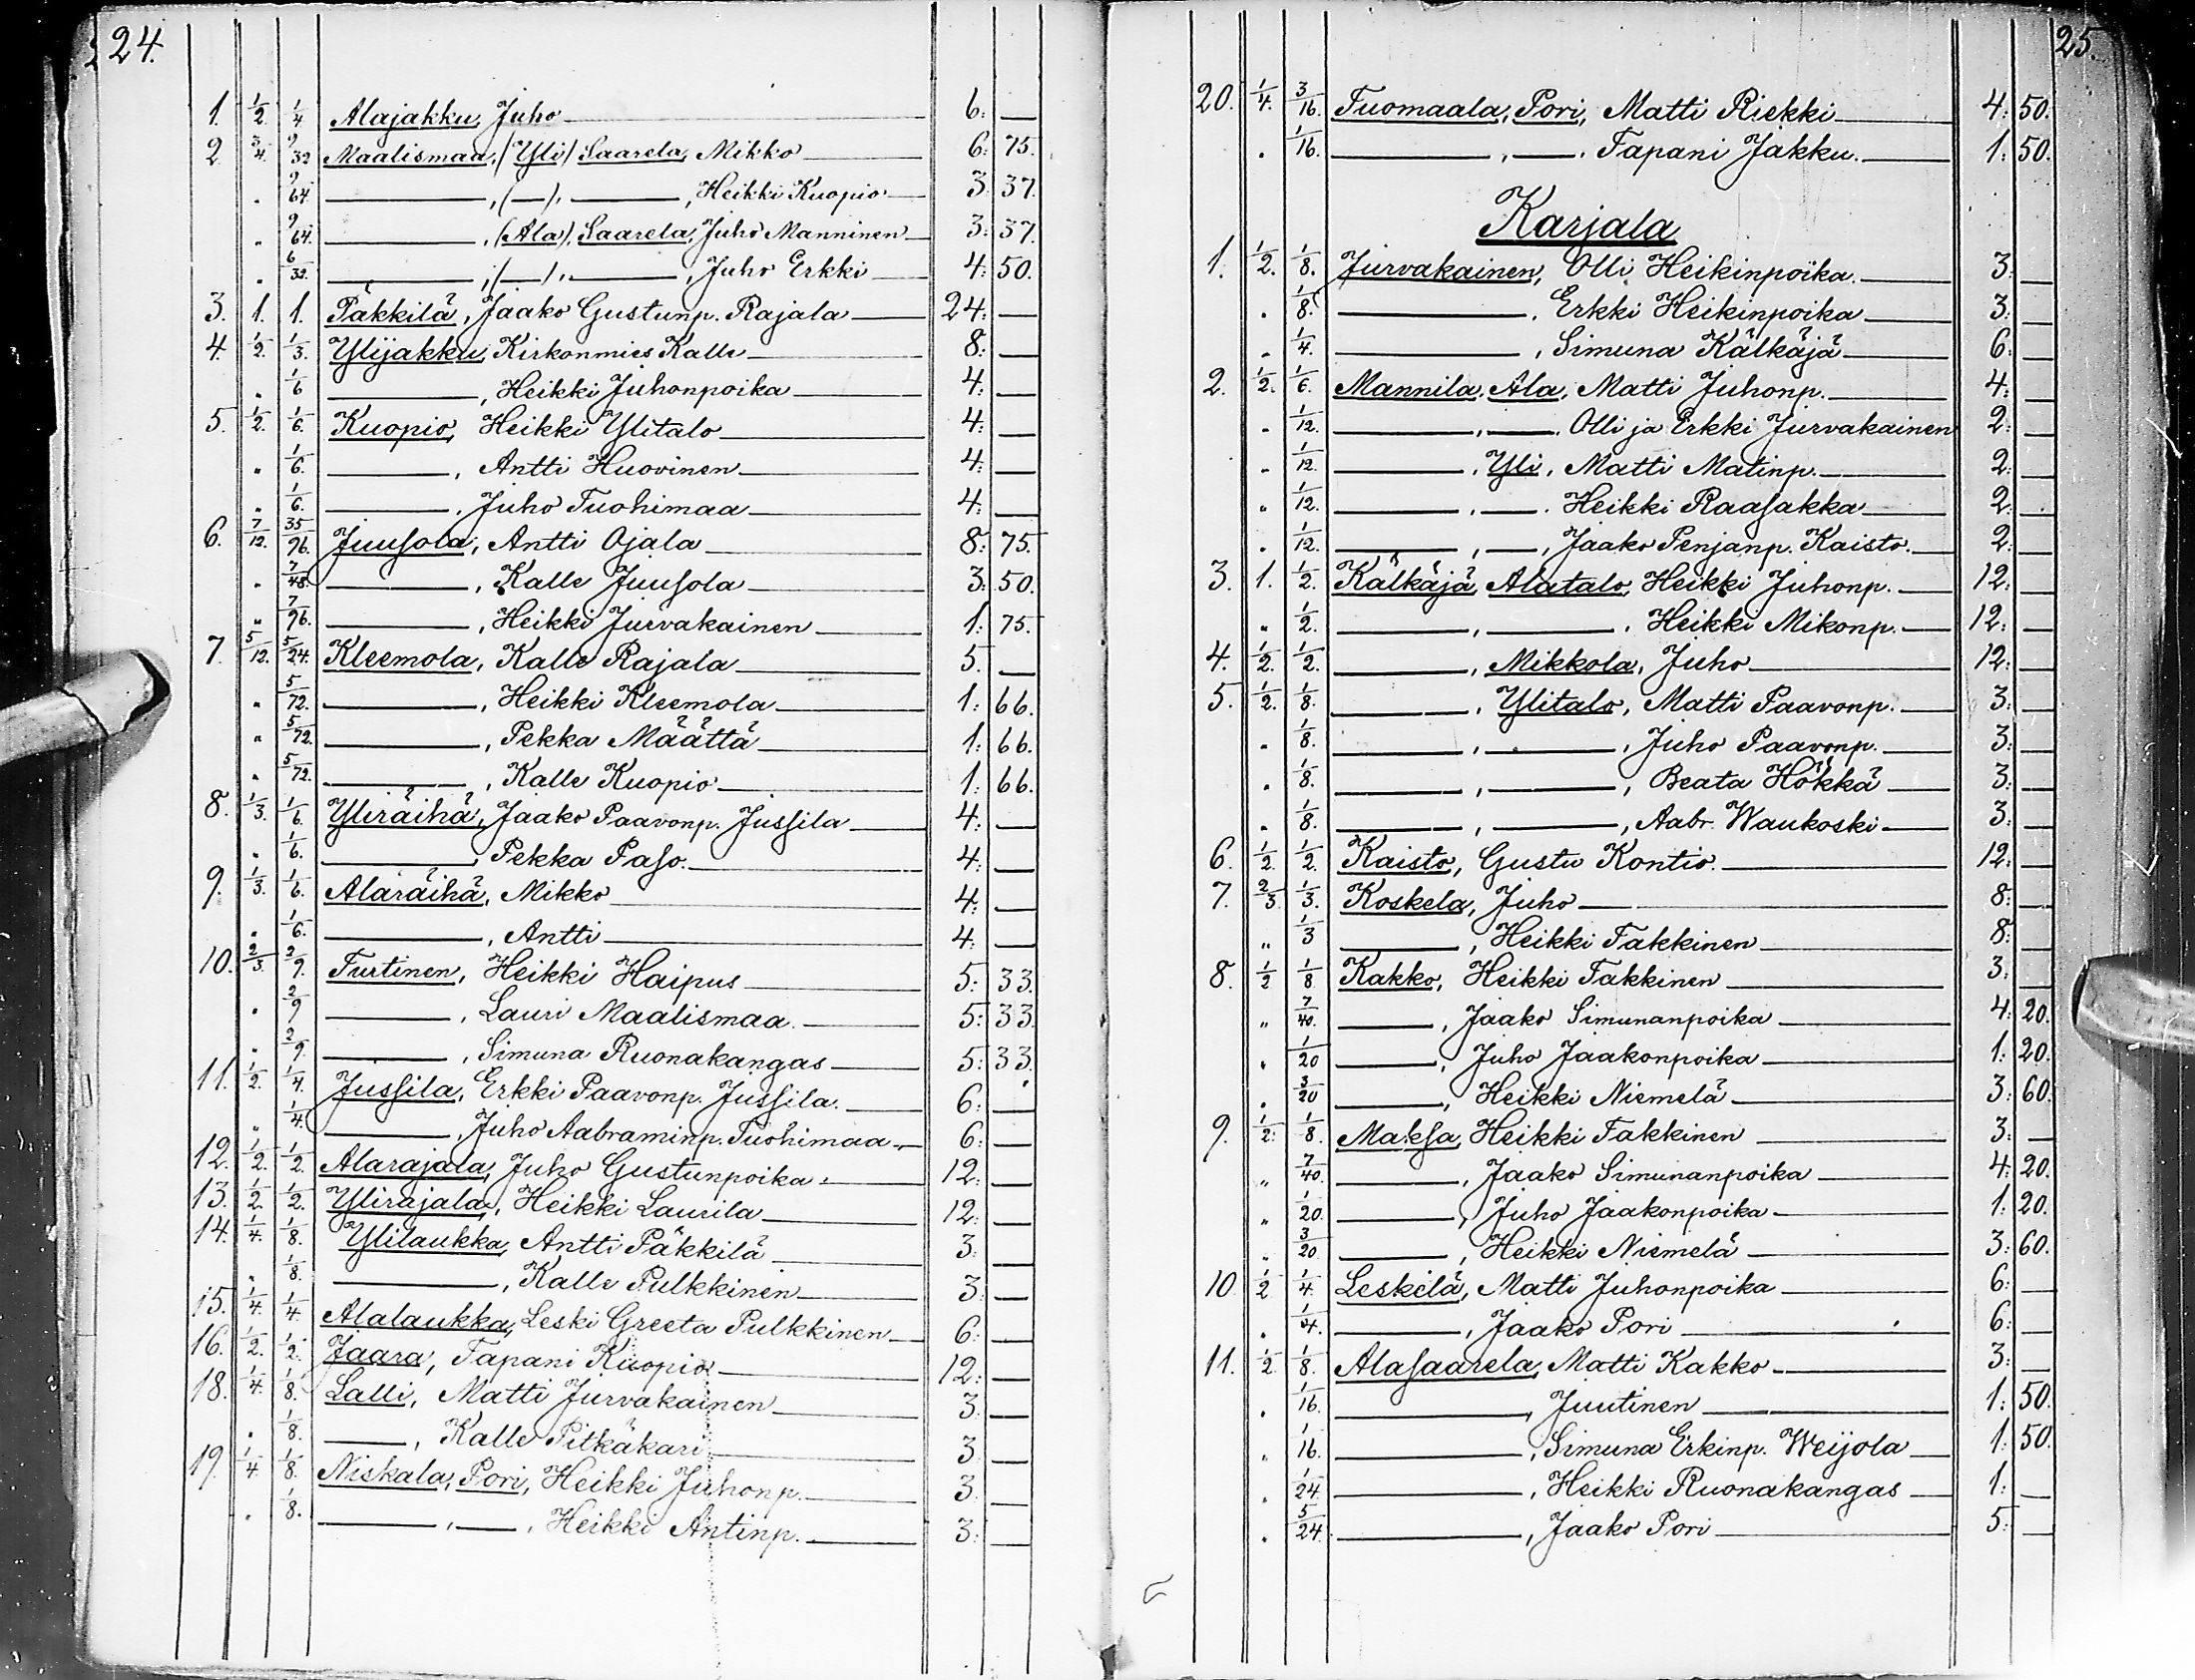 24.
1. 1/2. 1/4 Alajakku, Juho 6: —
2. 3/4. 9/32 Maalismaa, (Yli) Saarela, Mikko 6: 75.
„ 9/64. —, (—), —, Heikki Kuopio 3: 37.
„ 9/64. —, (Ala), Saarela, Juho Manninen 3: 37.
„ 6/32. —, (—), —, Juho Erkki 4: 50.
3. 1. 1. Päkkilä, Jaako Gustunp. Rajala 24: —
4. 1/2. 1/3. Ylijakku, Kirkonmies Kalle 8: —
„ 1/6 —, Heikki Juhonpoika 4: —
5. 1/2. 1/6. Kuopio, Heikki Ylitalo 4: —
„ 1/6. —, Antti Huovinen 4: —
„ 1/6. —, Juho Tuohimaa 4: —
6. 7/12. 35/96. Juusola, Antti Ojala 8: 75.
„ 7/48. —, Kalle Juusola 3: 50.
„ 7/96. —, Heikki Jurvakainen 1: 75.
7. 5/12. 5/24. Kleemola, Kalle Rajala 5. —
„ 5/72. —, Heikki Kleemola 1: 66.
„ 5/72. —, Pekka Määttä 1: 66.
„ 5/72. —, Kalle Kuopio 1: 66.
8. 1/3. 1/6. Yliräihä, Jaako Paavonp. Jussila 4: —
„ 1/6. —, Pekka Paso. 4: —
9. 1/3. 1/6. Alaräihä, Mikko 4: —
„ 1/6. —, Antti 4: —
10. 2/3. 2/9. Turtinen, Heikki Haipus 5: 33.
„ 2/9 —, Lauri Maalismaa. 5: 33.
„ 2/9. —, Simuna Ruonakangas 5: 33.
11. 1/2. 1/4. Jussila, Erkki Paavonp. Jussila. 6: —
„ 1/4. —, Juho Aabraminp. Tuohimaa 6: —
12. 1/2. 1/2. Alarajala, Juho Gustunpoika 12: —
13. 1/2. 1/2. Ylirajala, Heikki Laurila 12: —
14. 1/4. 1/8. Ylilaukka, Antti Päkkilä 3: —
„ 1/8. —, Kalle Pulkkinen 3: —
15. 1/4. 1/4. Alalaukka, Leski Greeta Pulkkinen 6: —
16. 1/2. 1/2. Jaara, Tapani Kuopio 12: —
18. 1/4. 1/8. Lalli, Matti Jurvakainen 3: —
„ 1/8. —, Kalle Pitkäkari 3 —
19. 1/4. 1/8. Niskala, Pori, Heikki Juhonp. 3: —
„ 1/8. —, —, Heikki Antinp. 3: —
25.
20. 1/4. 3/16. Tuomaala, Pori, Matti Riekki 4: 50.
„ 1/16. —, —. Tapani Jakku. 1: 50.
Karjala
1. 1/2. 1/8. Jurvakainen, Olli Heikinpoika. 3: —
„ 1/8. —. Erkki Heikinpoika 3: —
„ 1/4. —, Simuna Kälkäjä 6: —
2. 1/2. 1/6. Mannila, Ala, Matti Juhonp. 4: —
„ 1/12. —, —. Olli ja Erkki Jurvakainen 2: —
„ 1/12. —, Yli, Matti Matinp. 2: —
„ 1/12. —, —. Heikki Raasakka 2: —
„ 1/12. —, —, Jaako Penjanp. Kaisto. 2: —
3. 1. 1/2. Kälkäjä, Alatalo, Heikki Juhonp. 12: —
„ 1/2. —, —. Heikki Mikonp. 12: —
4. 1/2. 1/2. —, Mikkola, Juho 12: —
5. 1/2. 1/8. —, Ylitalo, Matti Paavonp. 3: —
„ 1/8. —, —, Juho Paavonp. 3: —
„ 1/8. —, —, Beata Hökkä 3: —
„ 1/8. —, —, Aabr. Waukoski 3: —
6. 1/2. 1/2. Kaisto, Gustu Kontio. 12: —
7. 2/3. 1/3. Koskela, Juho 8: —
„ 1/3 —, Heikki Takkinen 8: —
8. 1/2 1/8 Kakko, Heikki Takkinen 3: —
„ 7/40. —, Jaako Simunanpoika 4: 20.
„ 1/20 —, Juho Jaakonpoika 1: 20.
„ 3/20 —, Heikki Niemelä 3: 60.
9. 1/2. 1/8. Maksa, Heikki Takkinen 3: —
„ 7/40. —, Jaako Simunanpoika 4: 20.
„ 1/20. —, Juho Jaakonpoika 1: 20.
„ 3/20. —, Heikki Niemelä 3: 60.
10 1/2 1/4. Leskelä, Matti Juhonpoika 6: —
„ 1/4. —, Jaako Pori 6: —
11. 1/2. 1/8. Alasaarela, Matti Kakko 3: —
„ 1/16. —, Juutinen 1: 50.
„ 1/16. —, Simuna Erkinp. Weijola 1: 50.
„ 1/24. —, Heikki Ruonakangas 1: —
„ 5/24. —, Jaako Pori 5: —